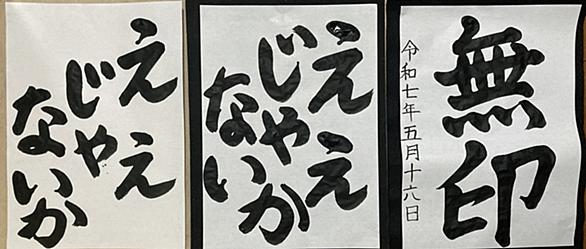 ええ
じゃ
ないか
ええ
じゃ
ないか
無印
令和七年五月十六日